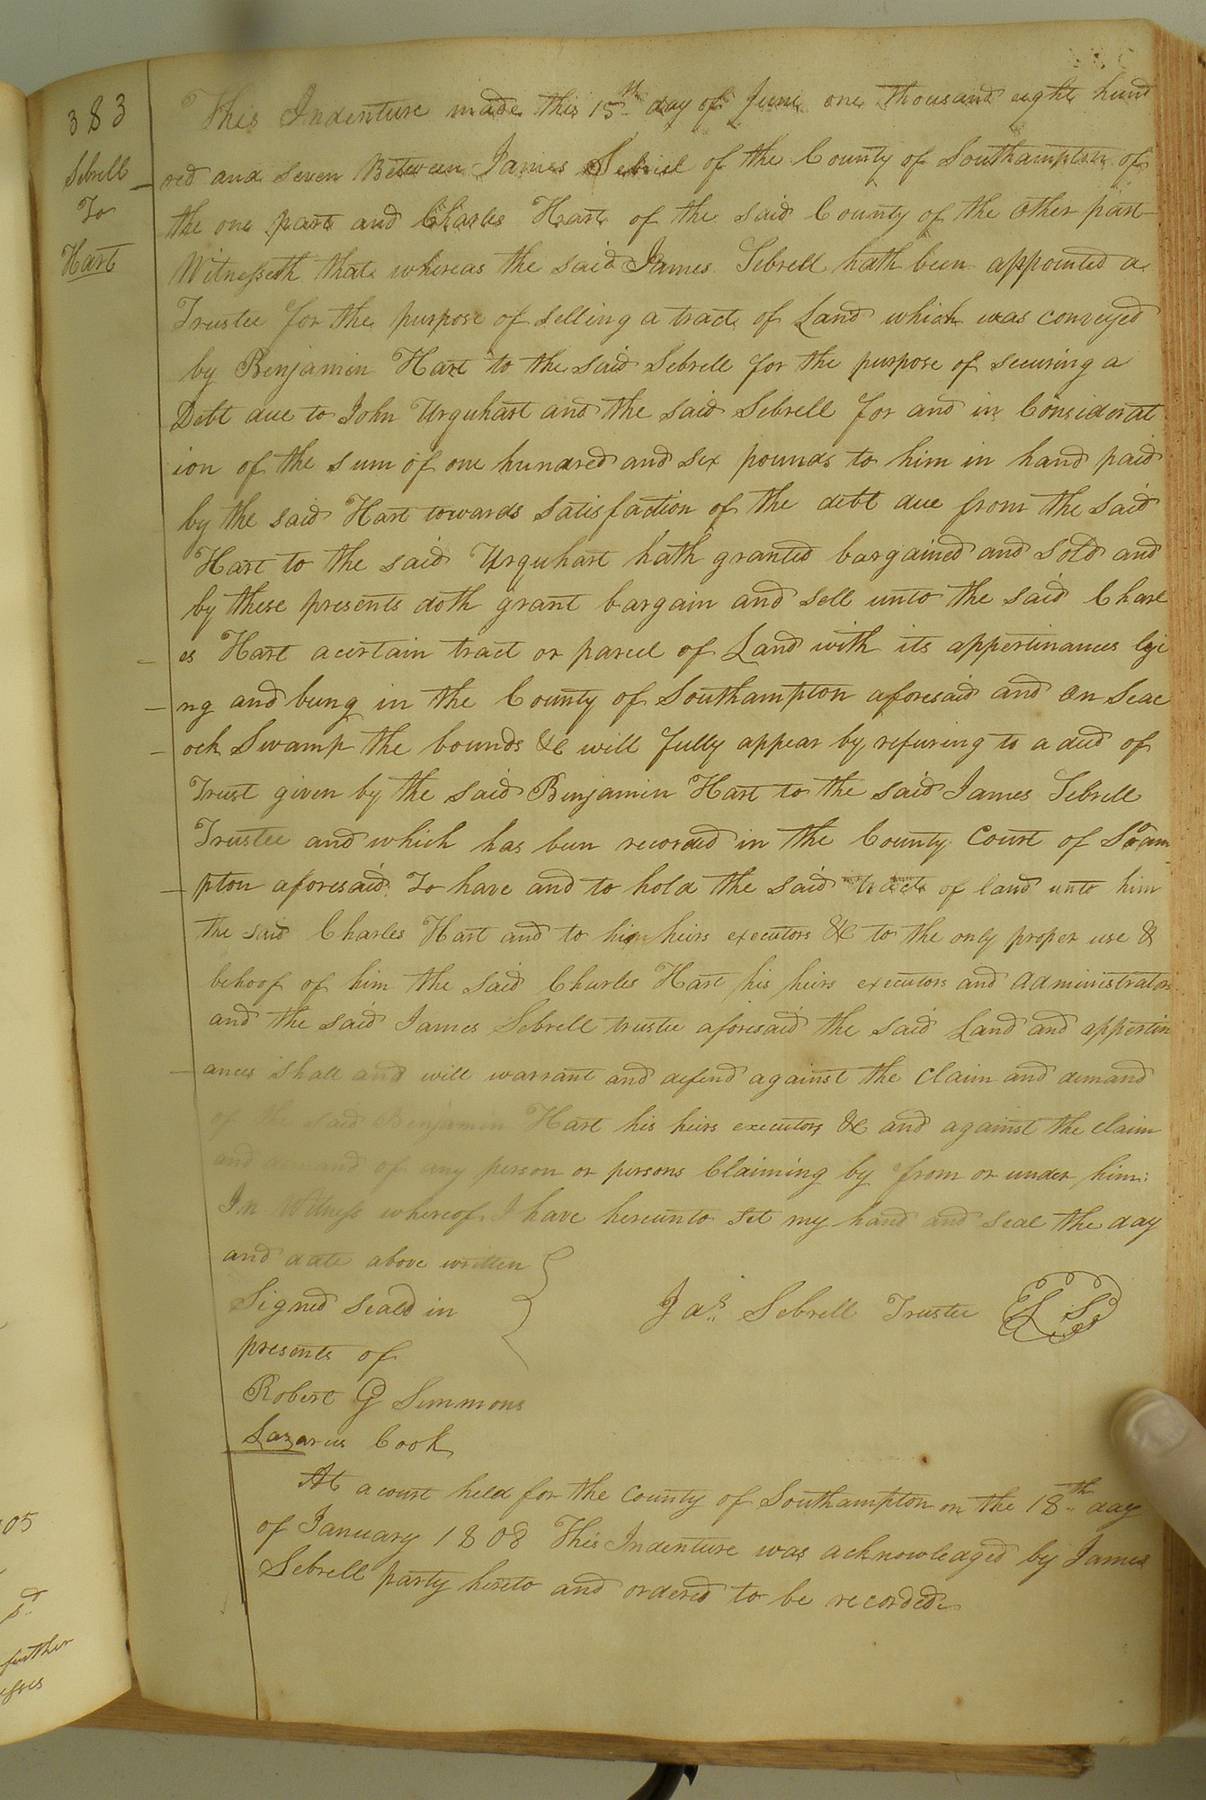 383
Sebrell
To
Hart
This Indenture made this 15th day of June one thousand eight hund
red and seven Between James Sebrell of the County of Southampton of
the one part and Charles Hart of the said County of the other part
Witnesseth that whereas the said James Sebrell hath been appointed a
Trustee for the purpose of selling a tract of Land which was conveyed
by Benjamin Hart to the said Sebrell for the purpose of securing a
Debt due to John Urquhart and the said Sebrell for and in Considerat
ion of the sum of one hundred and six pounds to him in hand paid
by the said Hart towards satisfaction of the debt due from the said
Hart to the said Urquhart hath granted bargained and sold and
by these presents doth grant bargain and sell unto the said Charl
es Hart a certain tract or parcel of Land with its appertinances lyi
ng and being in the County of Southampton aforesaid and on Seac
ock Swamp the bounds &c will fully appear by refering to a deed of
Trust given by the said Benjamin Hart to the said James Sebrell
Trustee and which has been recorded in the County Court of Soam
pton aforesaid. To have and to hold the said tract of land unto him
the said Charles Hart and to him heirs executors &c to the only proper use &
behoof of him the said Charles Hart his heirs executors and administrators
and the said James Sebrell trustee aforesaid the said Land and appertin
ances shall and will warrant and defend against the claim and demand
of the said Benjamin Hart his heirs executors &c and against the claim
and demand of any person or persons Claiming by from or under him:
In Witness whereof I have hereunto set my hand and seal the day
and date above written
Signed Seald in
presents of
Jas. Sebrell Trustee L S
Robert G Simmons
Lazarus Cook
At a court held for the county of Southampton on the 18th day
of January 1808 This Indenture was acknowledged by James
Sebrell party hereto and ordered to be recorded.
05
pd
further